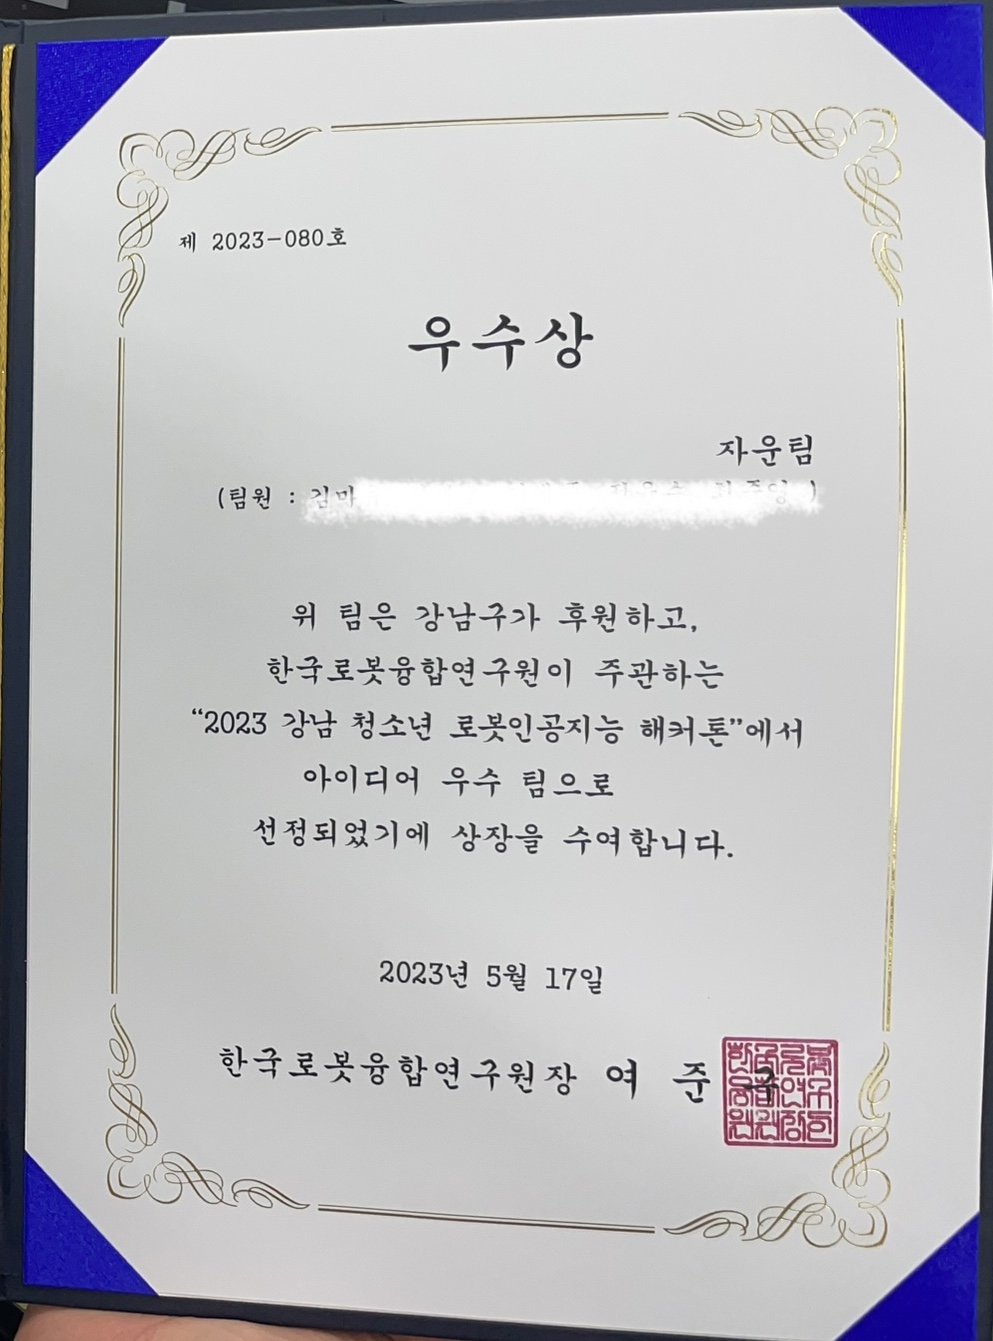 제 2023-080호
우수상
자운팀
(팀원 : 김마
위 팀은 강남구가 후원하고,
한국로봇융합연구원이 주관하는
“2023 강남 청소년 로봇인공지능 해커톤”에서
아이디어 우수 팀으로
선정되었기에 상장을 수여합니다.
2023년 5월 17일
한국로봇융합연구원장 여 준 구